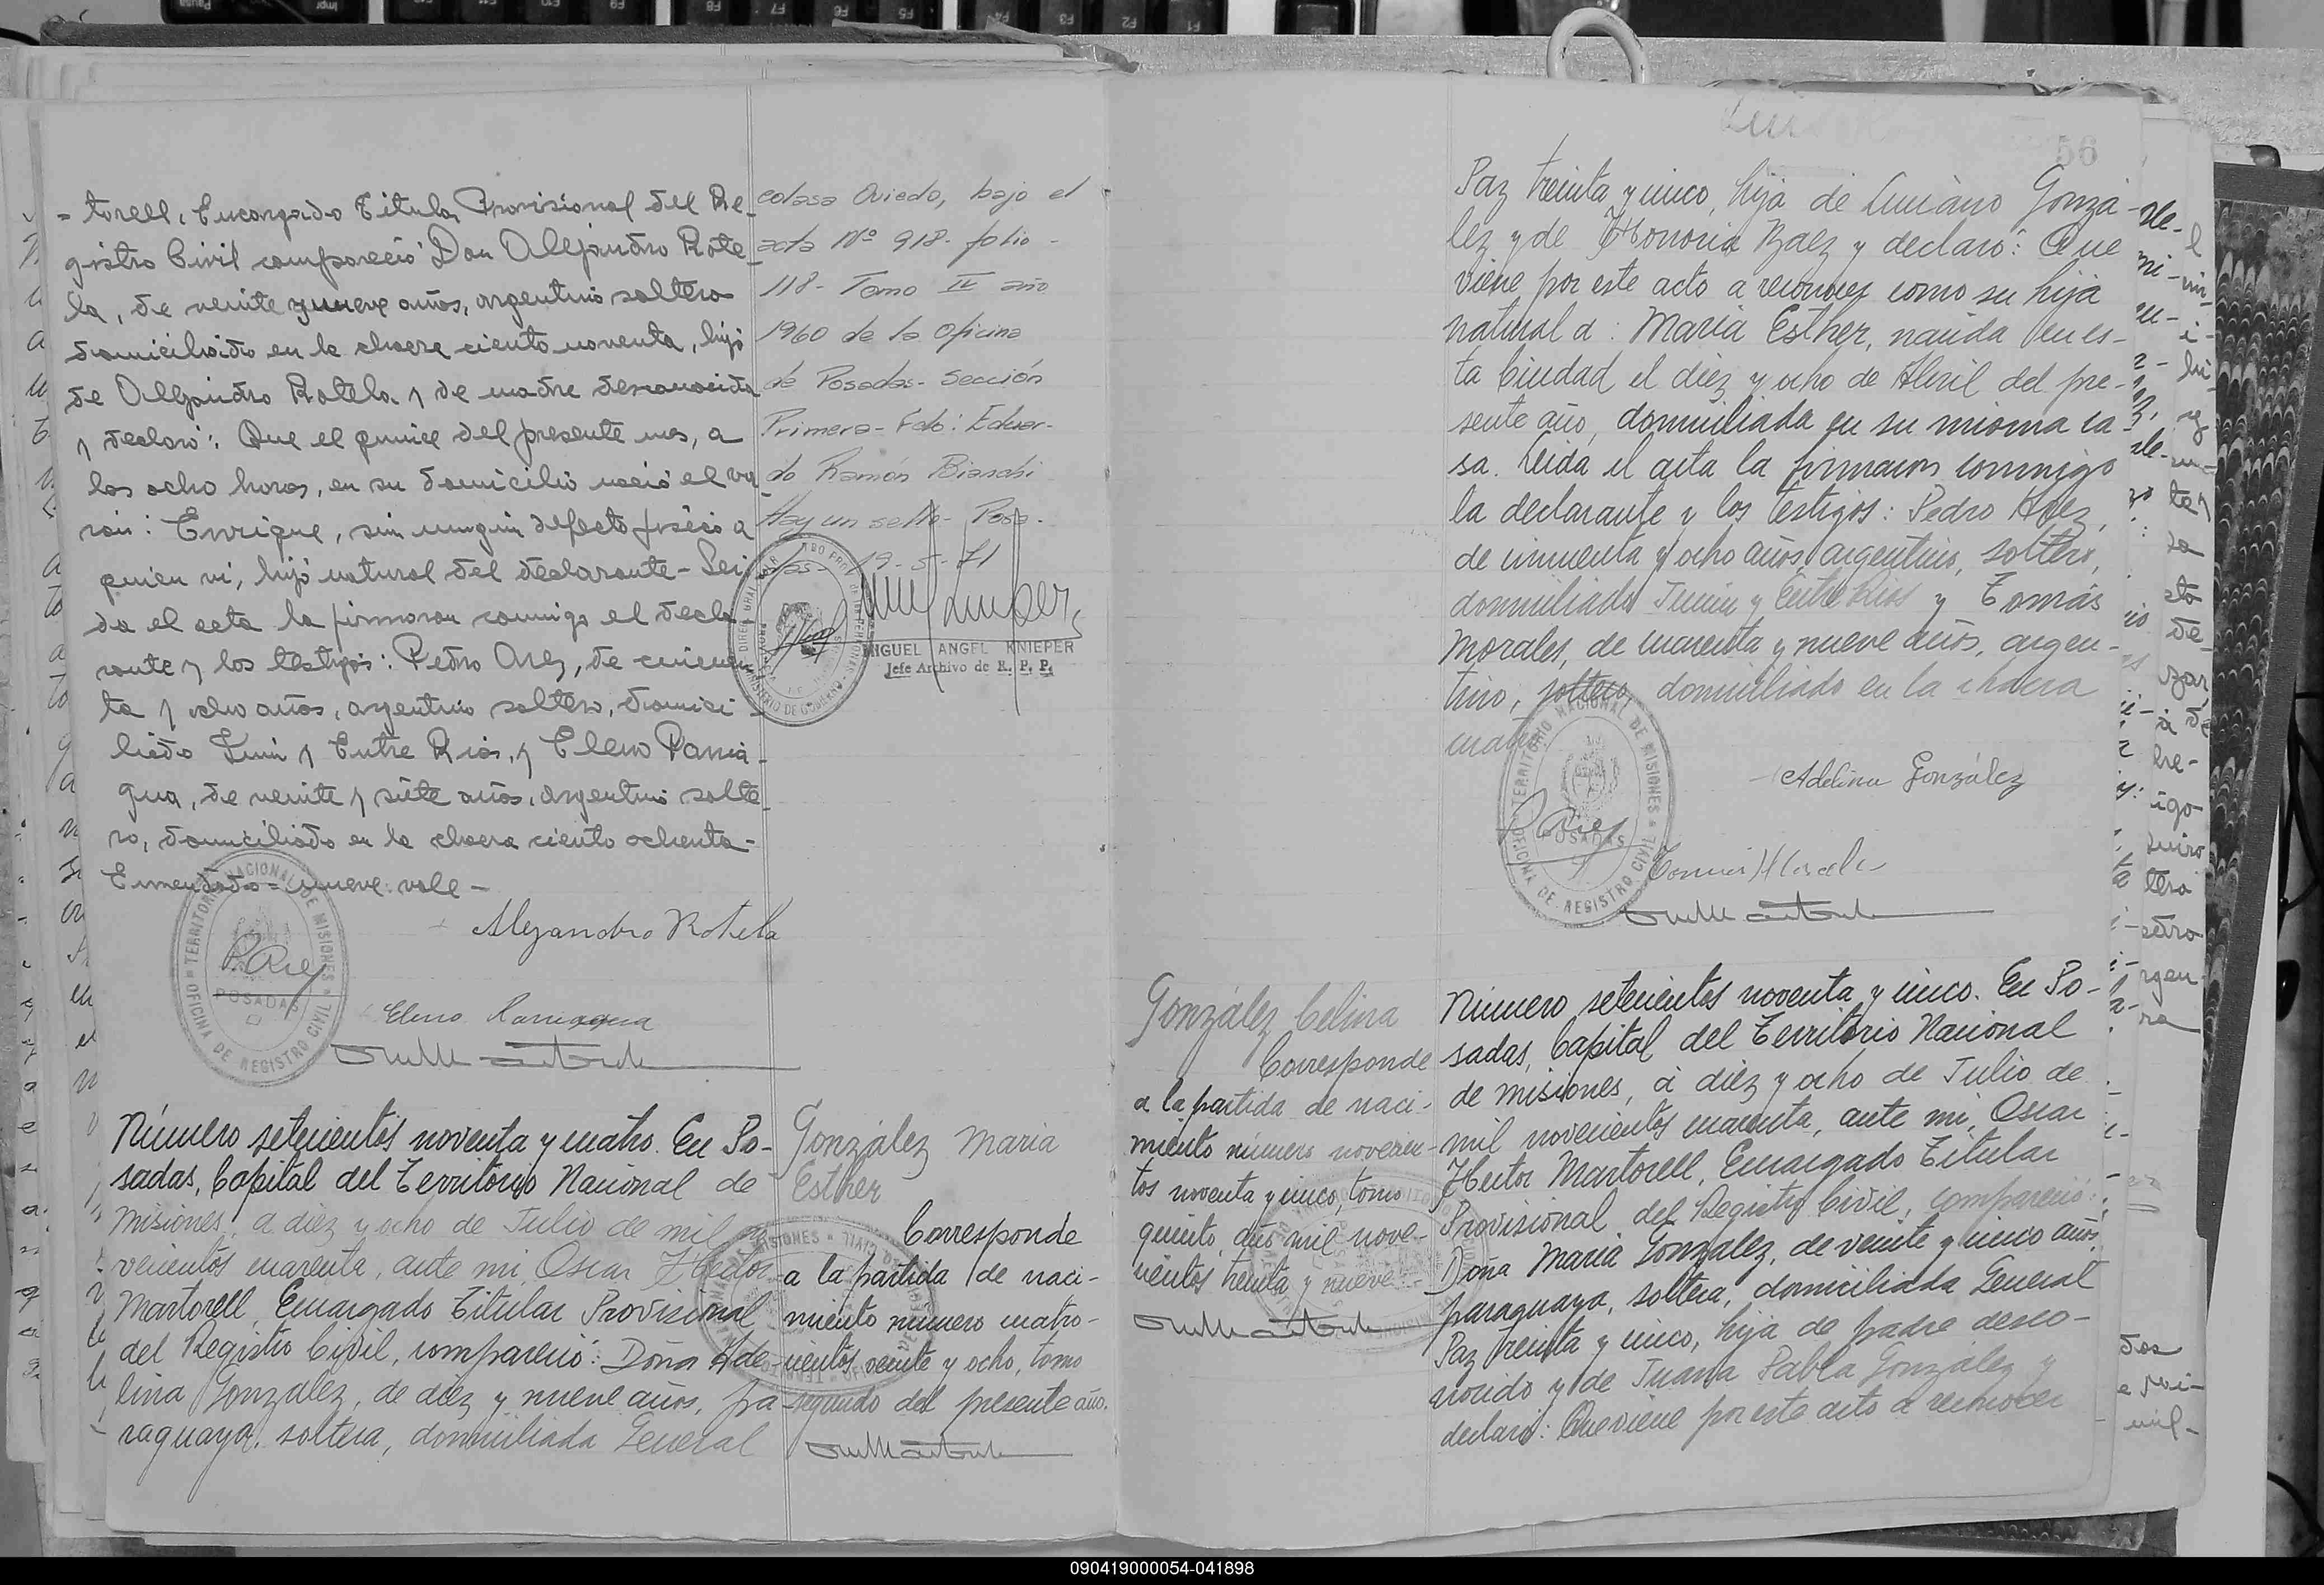 - torell, Encargado Titular Provisional del Re-
gistro Civil compareció Don Alejandro Rote-
la, de veinte y nueve años, argentino soltero
domiciliado en la chacra ciento noventa, hijo
de Alejandro Rotela y de madre desconocida
y declaró: Que el quince del presente mes, a
las ocho horas, en su domicilio nació el va-
rón: Enrique, sin ningún defecto físico a
quien vi, hijo natural del declarante - Lei-
da el acta la firmaron conmigo el decla-
rante y los testigos: Pedro Arez, de cincuen-
ta y ocho años, argentino soltero, domici-
liado Junin y Entre Rios, y Eleno Pania-
gua, de veinte y siete años, argentino solte-
ro, domiciliado en la chacra ciento ochenta-
Enmendado = nueve vale -
Alejandro Rotela
P. Arez
Eleno Paniagua
TERRITORIO NACIONAL DE MISIONES
OFICINA DE REGISTRO CIVIL
POSADAS
colasa Oviedo, bajo el
acta Nº 918- folio -
118- Tomo IV año
1960 de la Oficina
de Posadas- Sección
Primera- Fdo: Eduar-
do Ramón Bianchi
Hay un sello- Posa-
das- 19-5-71
MIGUEL ANGEL KNIEPER
Jefe Archivo de R. P. P.
Número setecientos noventa y cuatro. En Po-
sadas, Capital del Territorio Nacional de
Misiones, a diez y ocho de Julio de mil no-
vecientos cuarenta, ante mi, Oscar Hector
Martorell, Encargado Titular Provisional
del Registro Civil, compareció: Doña Ade-
lina Gonzalez, de diez y nueve años, pa-
raguaya, soltera, domiciliada General
González Maria
Esther
Corresponde
a la partida de naci-
miento número cuatro-
cientos veinte y ocho, tomo
segundo del presente año.
56
Paz treinta y cinco, hija de Luciano Gonzá-
lez y de Honoria Baez y declaró: Que
viene por este acto a reconocer como su hija
natural a: Maria Esther, nacida en es-
ta Ciudad el diez y ocho de Abril del pre-
sente año, domiciliada en su misma ca-
sa. Leida el acta la firmaron conmigo
la declarante y los testigos: Pedro Arez,
de cincuenta y ocho años, argentino, soltero,
domiciliado Junin y Entre Rios y Tomás
Morales, de cuarenta y nueve años, argen-
tino, soltero, domiciliado en la chacra
cuatro.
Adelina González
P. Arez
Tomas Morales
TERRITORIO NACIONAL DE MISIONES
OFICINA DE REGISTRO CIVIL
POSADAS
González Celina
Corresponde
a la partida de naci-
miento número novecien-
tos noventa y cinco, tomo
quinto, año mil nove-
cientos treinta y nueve
Número setecientos noventa y cinco. En Po-
sadas, Capital del Territorio Nacional
de Misiones, á diez y ocho de Julio de
mil novecientos cuarenta, ante mi, Oscar
Hector Martorell, Encargado Titular
Provisional del Registro Civil, compareció:
Doña Maria Gonzalez, de veinte y cinco años,
paraguaya, soltera, domiciliada General
Paz treinta y cinco, hija de padre desco-
nocido y de Juana Pabla González y
declaró: Que viene por este acto a reconocer
090419000054-041898